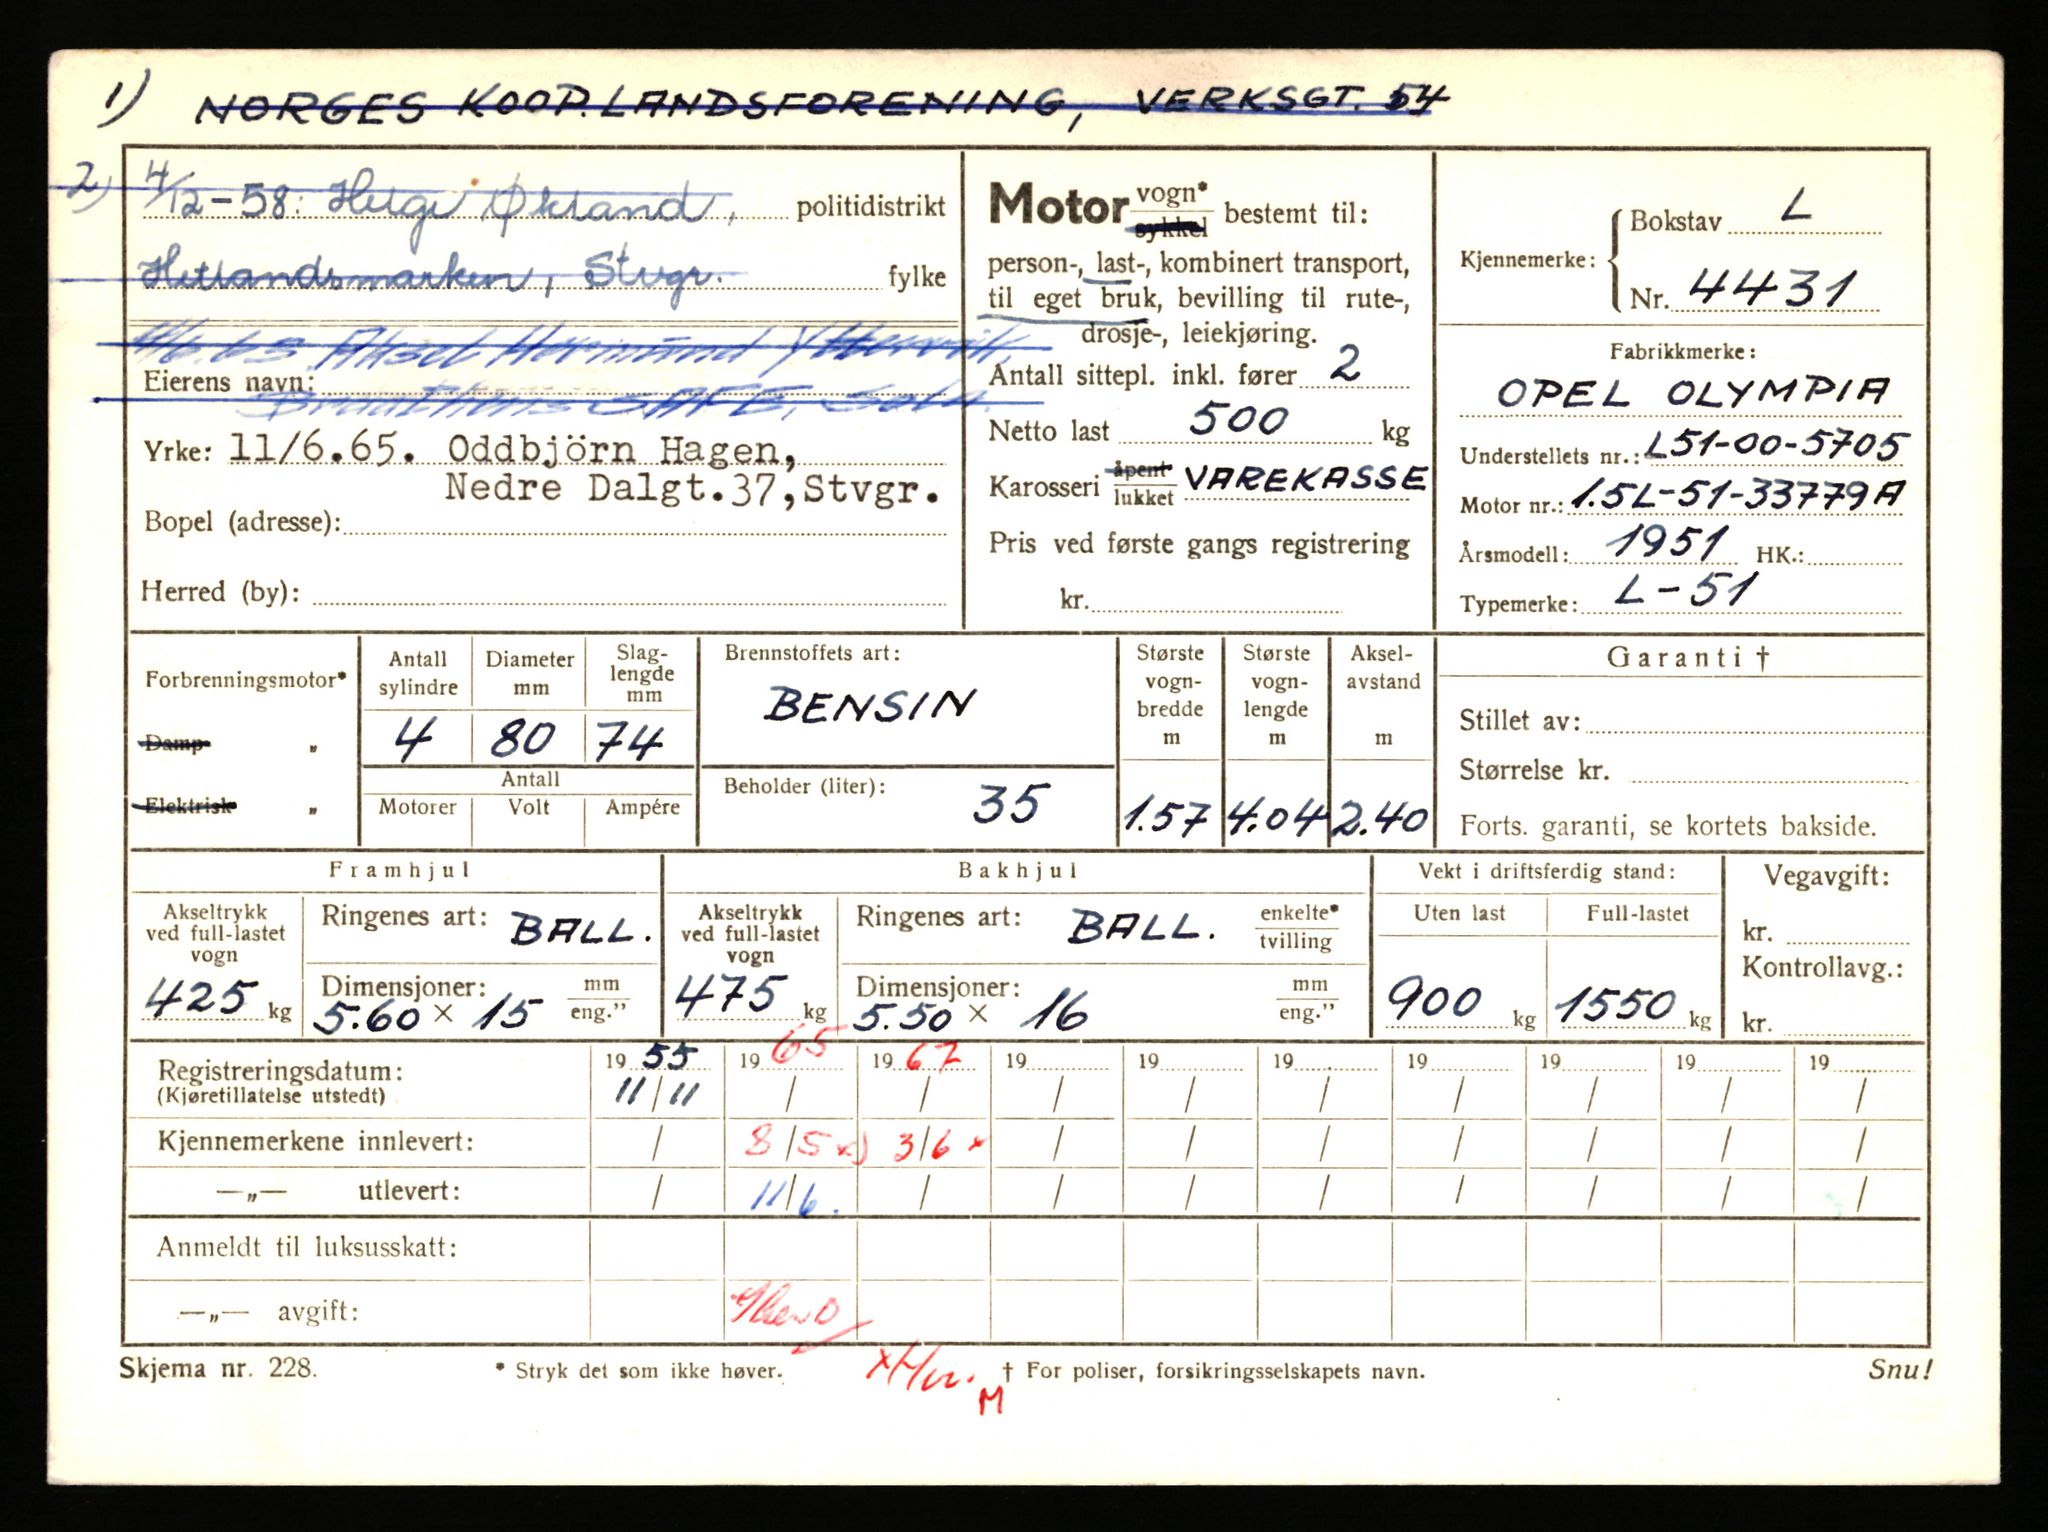 1) NORGES KOOP. LANDSFORENING, VERKSGT. 54
2) 4/12-58: Helge Økland, politidistrikt
Hetlandsmarken, Stvgr. fylke
Aksel Hermund Yttervik,
Eierens navn: CAFE, Sola.
Yrke: 11/6.65. Oddbjörn Hagen,
Nedre Dalgt.37, Stvgr.
Bopel (adresse):
Herred (by):
Motor vogn* sykkel bestemt til:
person-, last-, kombinert transport,
til eget bruk, bevilling til rute-,
drosje-, leiekjøring.
Antall sittepl. inkl. fører 2
Netto last 500 kg
Karosseri åpent lukket VAREKASSE
Pris ved første gangs registrering
kr.
Kjennemerke: Bokstav L
Nr. 4431
Fabrikkmerke:
OPEL OLYMPIA
Understellets nr.: L51-00-5705
Motor nr.: 1.5L-51-33779A
Årsmodell: 1951 HK.:
Typemerke: L-51
Forbrenningsmotor*
Damp "
Elektrisk "
Antall sylindre 4
Diameter mm 80
Slag-lengde mm 74
Antall
Motorer Volt Ampére
Brennstoffets art:
BENSIN
Beholder (liter): 35
Største vogn-bredde m 1.57
Største vogn-lengde m 4.04
Aksel-avstand m 2.40
Garanti †
Stillet av:
Størrelse kr.
Forts. garanti, se kortets bakside.
Framhjul
Akseltrykk ved full-lastet vogn 425 kg
Ringenes art: BALL.
Dimensjoner: mm eng."
5.60 × 15
Bakhjul
Akseltrykk ved full-lastet vogn 475 kg
Ringenes art: BALL. enkelte* tvilling
Dimensjoner: mm eng."
5.50 × 16
Vekt i driftsferdig stand:
Uten last Full-lastet
900 kg 1550 kg
Vegavgift:
kr.
Kontrollavg.:
kr.
Registreringsdatum: 19 55 19 65 19 67 19 19 19 19 19 19 19
(Kjøretillatelse utstedt) 11/11 / / / / / / / / /
Kjennemerkene innlevert: / 8/5 x) 3/6 x / / / / / / /
—„— utlevert: / 11/6. / / / / / / / /
Anmeldt til luksusskatt:
—„— avgift:
Skjema nr. 228. * Stryk det som ikke høver. † For poliser, forsikringsselskapets navn. Snu!
M